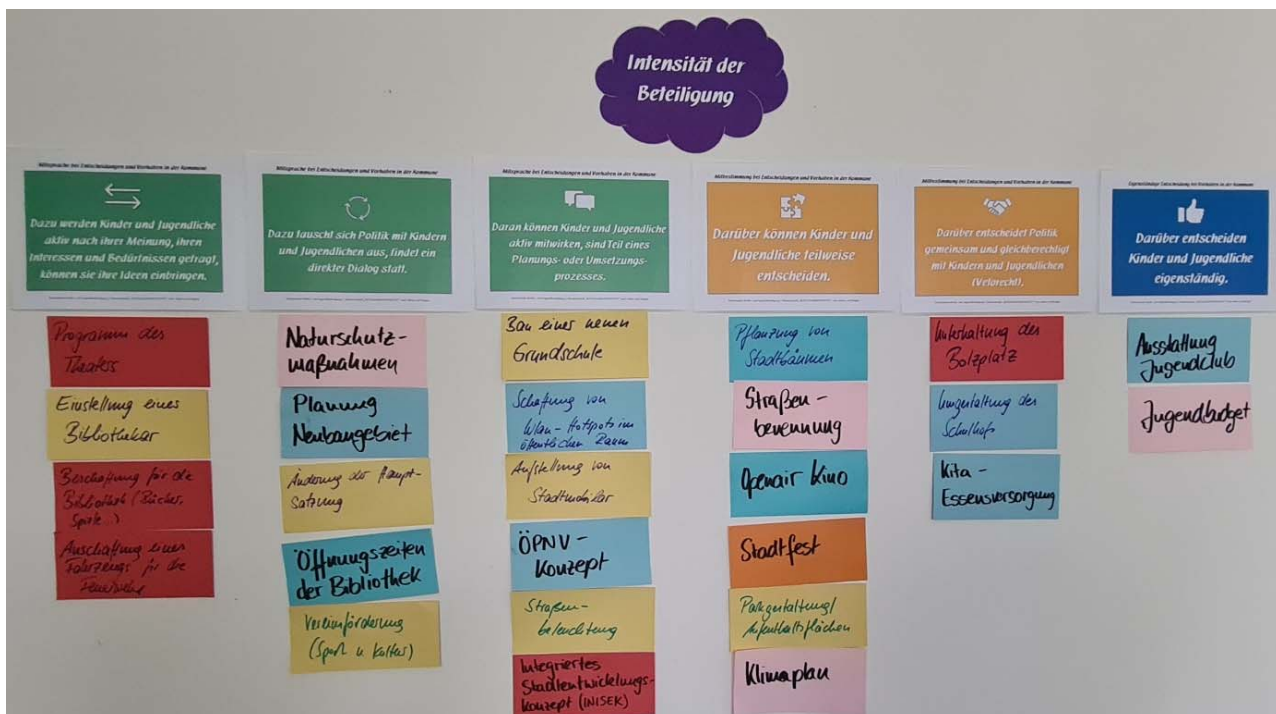 Intensität der
Beteiligung
Mitsprache bei Entscheidungen und Vorhaben in der Kommune
Dazu werden Kinder und Jugendliche
aktiv nach ihrer Meinung, ihren
Interessen und Bedürfnissen gefragt,
können sie ihre Ideen einbringen.
Programm des
Theaters
Einstellung eines
Bibliothekar
Beschaffung für die
Bibliothek (Bücher,
Spiele...)
Anschaffung eines
Fahrzeugs für die
Feuerwehr
Mitsprache bei Entscheidungen und Vorhaben in der Kommune
Dazu tauscht sich Politik mit Kindern
und Jugendlichen aus, findet ein
direkter Dialog statt.
Naturschutz-
maßnahmen
Planung
Neubaugebiet
Änderung der Haupt-
satzung
Öffnungszeiten
der Bibliothek
Vereinsförderung
(Sport u Kultur)
Mitsprache bei Entscheidungen und Vorhaben in der Kommune
Daran können Kinder und Jugendliche
aktiv mitwirken, sind Teil eines
Planungs- oder Umsetzungs-
prozesses.
Bau einer neuen
Grundschule
Schaffung von
Wlan-Hotspots im
öffentlichen Raum
Aufstellung von
Stadtmobiliar
ÖPNV-
Konzept
Straßen-
beleuchtung
Integriertes
Stadtentwicklungs-
konzept (INISEK)
Mitbestimmung bei Entscheidungen und Vorhaben in der Kommune
Darüber können Kinder und
Jugendliche teilweise
entscheiden.
Pflanzung von
Stadtbäumen
Straßen-
benennung
Openair Kino
Stadtfest
Parkgestaltung/
Aufenthaltsflächen
Klimaplan
Mitbestimmung bei Entscheidungen und Vorhaben in der Kommune
Darüber entscheidet Politik
gemeinsam und gleichberechtigt
mit Kindern und Jugendlichen
(Vetorecht).
Unterhaltung des
Bolzplatz
Umgestaltung des
Schulhofs
Kita-
Essensversorgung
Eigenständige Entscheidung bei Vorhaben in der Kommune
Darüber entscheiden
Kinder und Jugendliche
eigenständig.
Ausstattung
Jugendclub
Jugendbudget